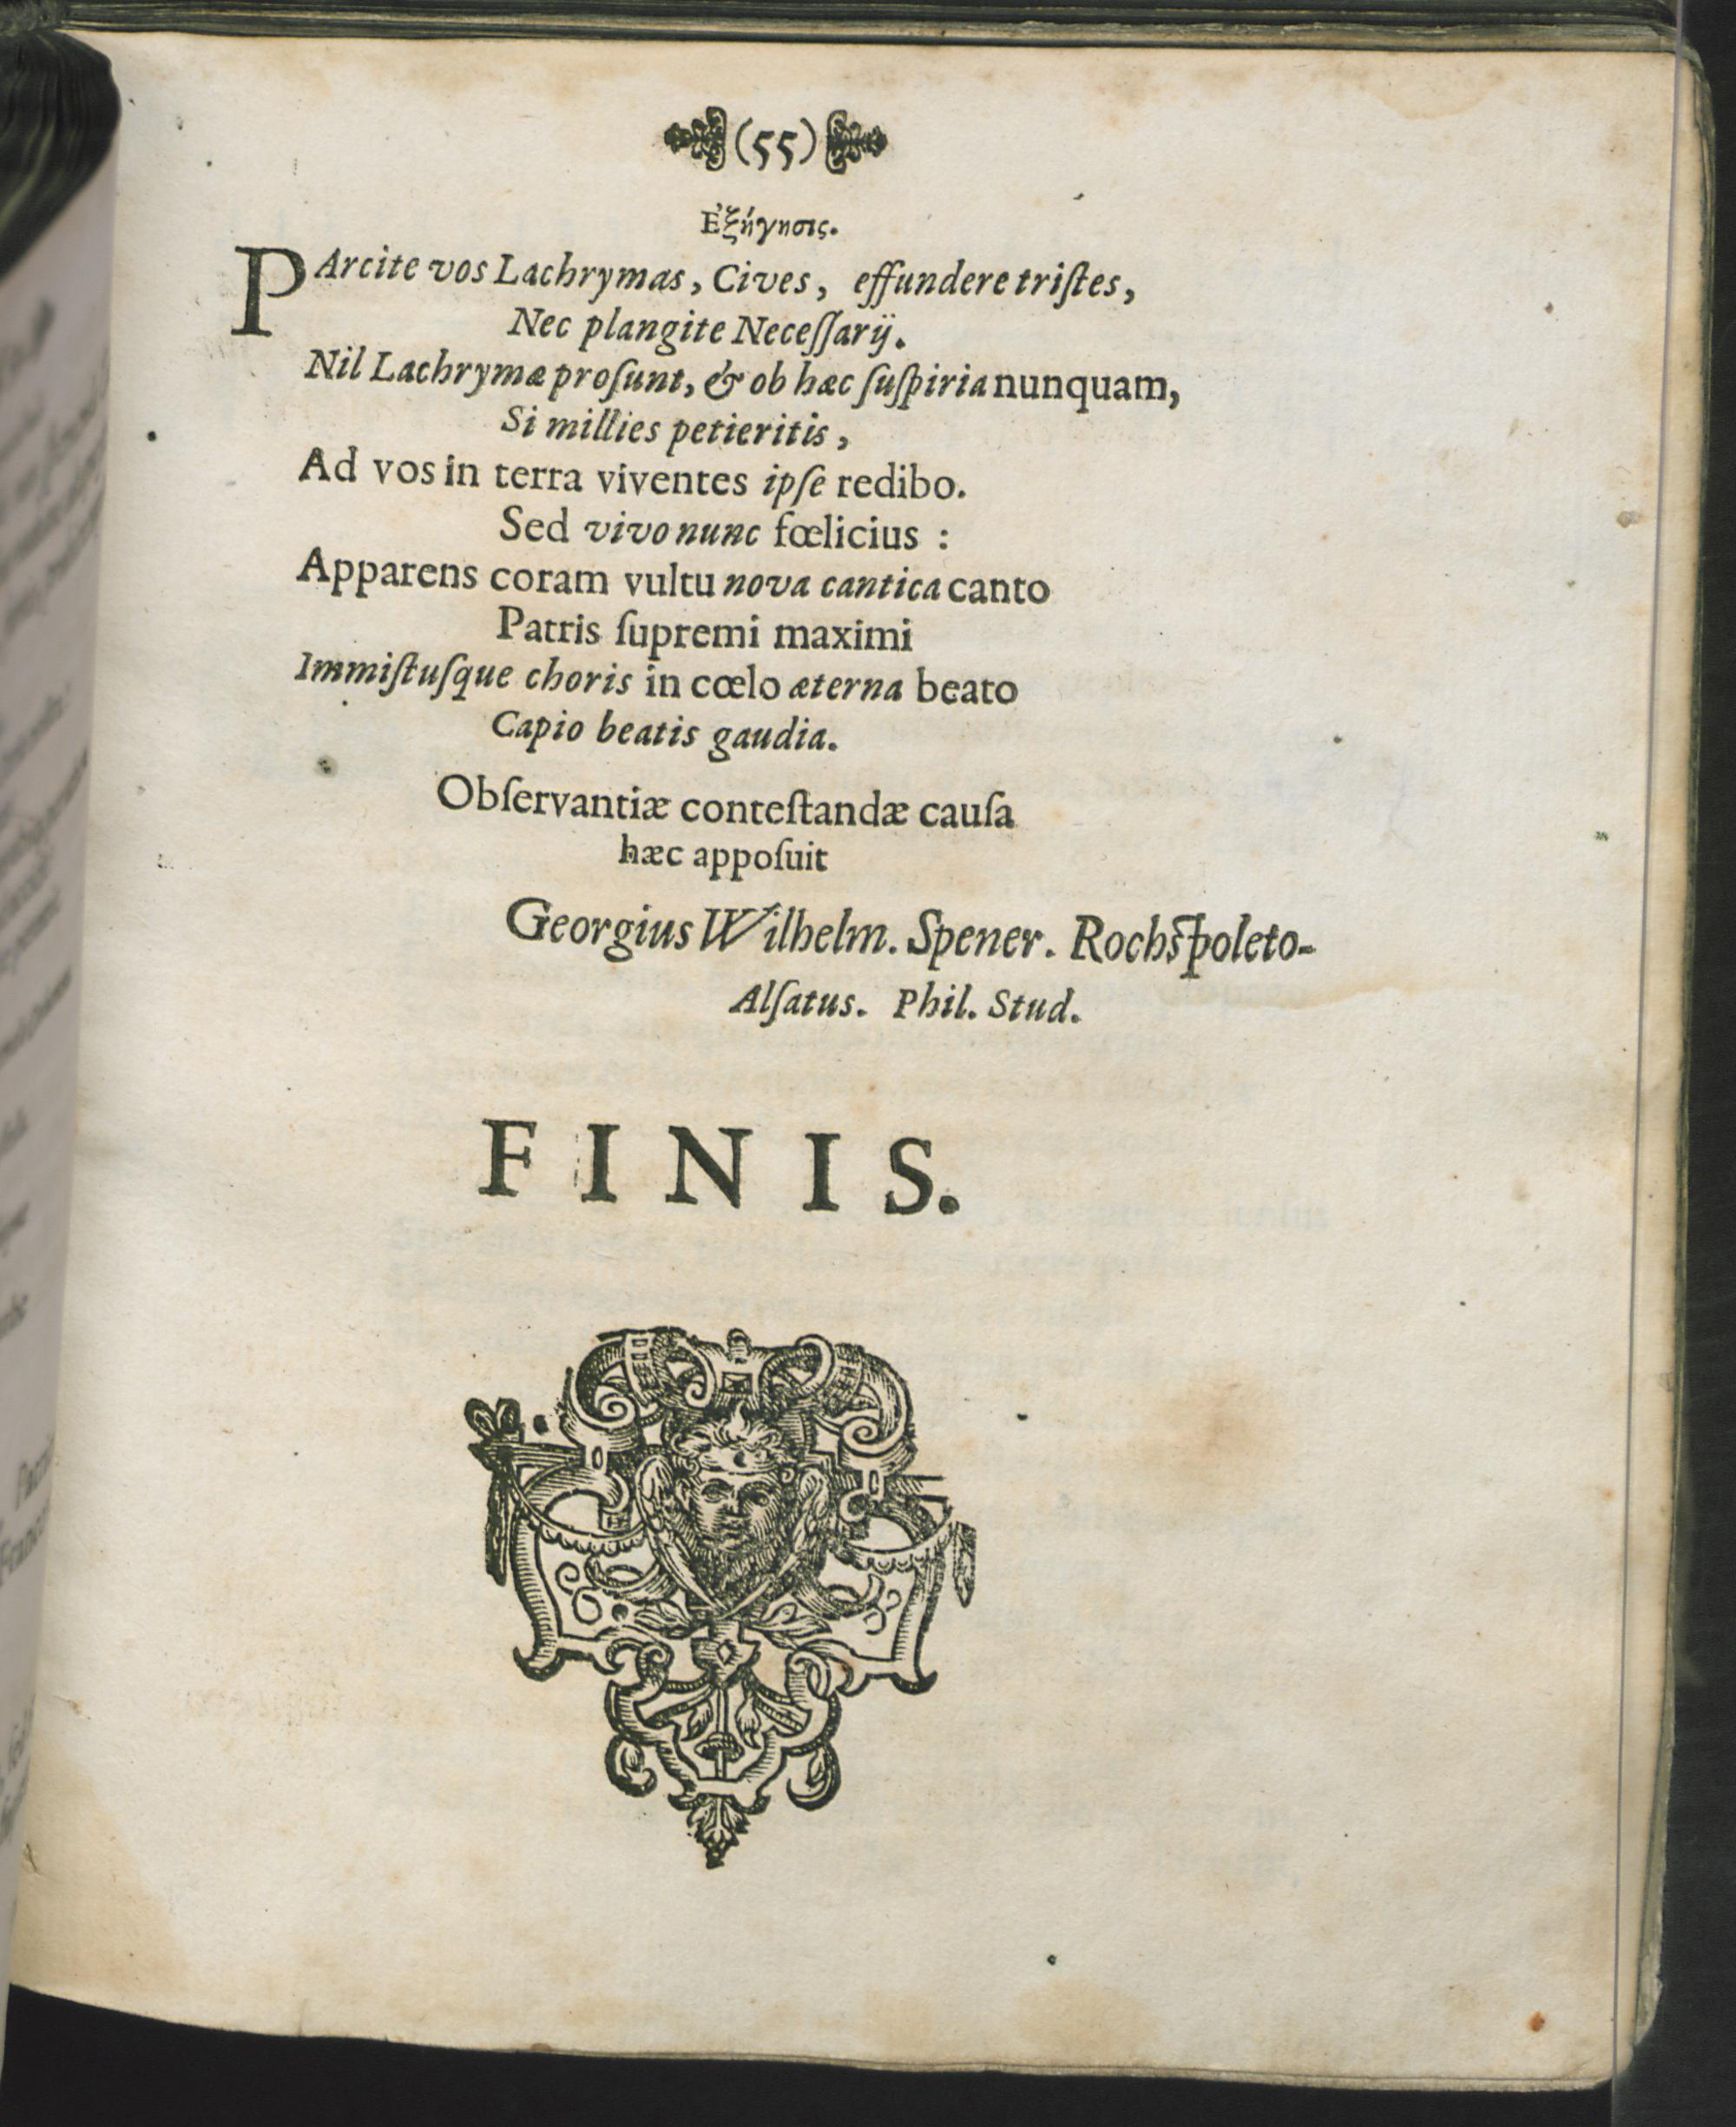 (55)
Ἐξήγησις.
PArcite vos Lachrymas, Cives, effundere triſtes,
Nec plangite Neceſſarij.
Nil Lachrymæ proſunt, & ob hæc ſuſpiria nunquam,
Si millies petieritis,
Ad vos in terra viventes ipſe redibo.
Sed vivo nunc fœlicius :
Apparens coram vultu nova cantica canto
Patris ſupremi maximi
Immiſtuſque choris in cœlo æterna beato
Capio beatis gaudia.
Obſervantiæ conteſtandæ cauſa
hæc appoſuit
Georgius Wilhelm. Spener. Rochſpoleto-
Alſatus. Phil. Stud.
FINIS.